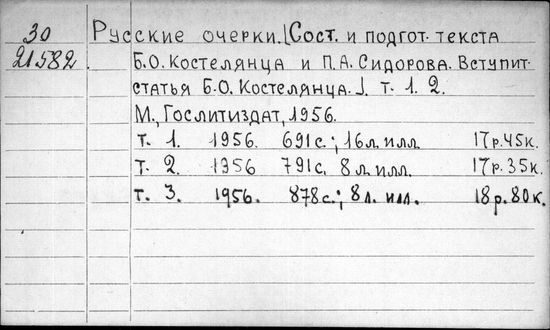 30 Русские очерки. [Сост. и подгот. текста
21582. Б.О. Костелянца и П.А. Сидорова. Вступит.
статья Б.О. Костелянца.]. т. 1. 2.
М., Гослитиздат, 1956.
т. 1. 1956. 691с.; 16л. илл. 17р.45к.
т. 2. 1956 791с, 8л. илл. 17р.35к.
т. 3. 1956. 878с.; 8л. илл. 18р.80к.